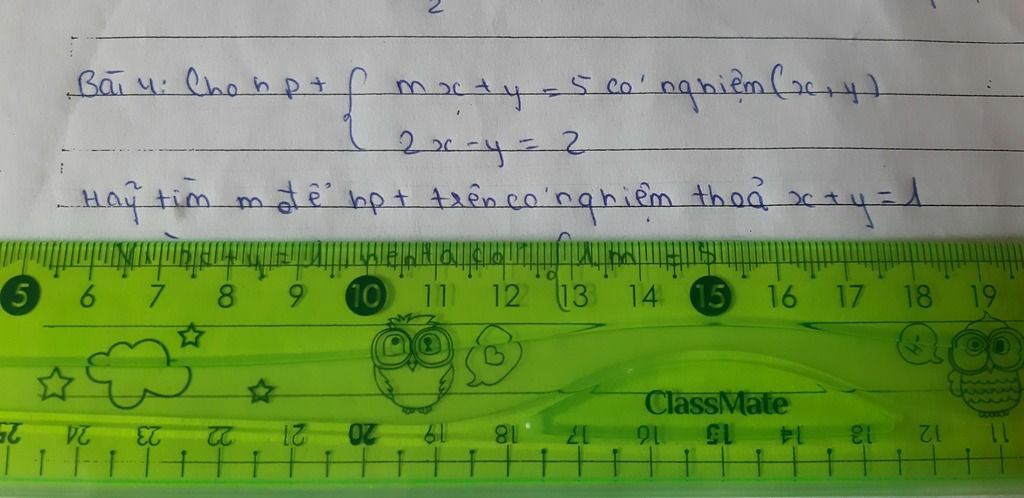 2
Bài 4: Cho hpt { mx + y = 5 có nghiệm (x, y)
2x - y = 2
Hãy tìm m để hpt trên có nghiệm thoả x + y = 1
Vì x + y = 1 nên ta có {1.m = 5
5 6 7 8 9 10 11 12 13 14 15 16 17 18 19
Hi
ClassMate
25 24 23 22 21 20 19 18 17 16 15 14 13 12 11